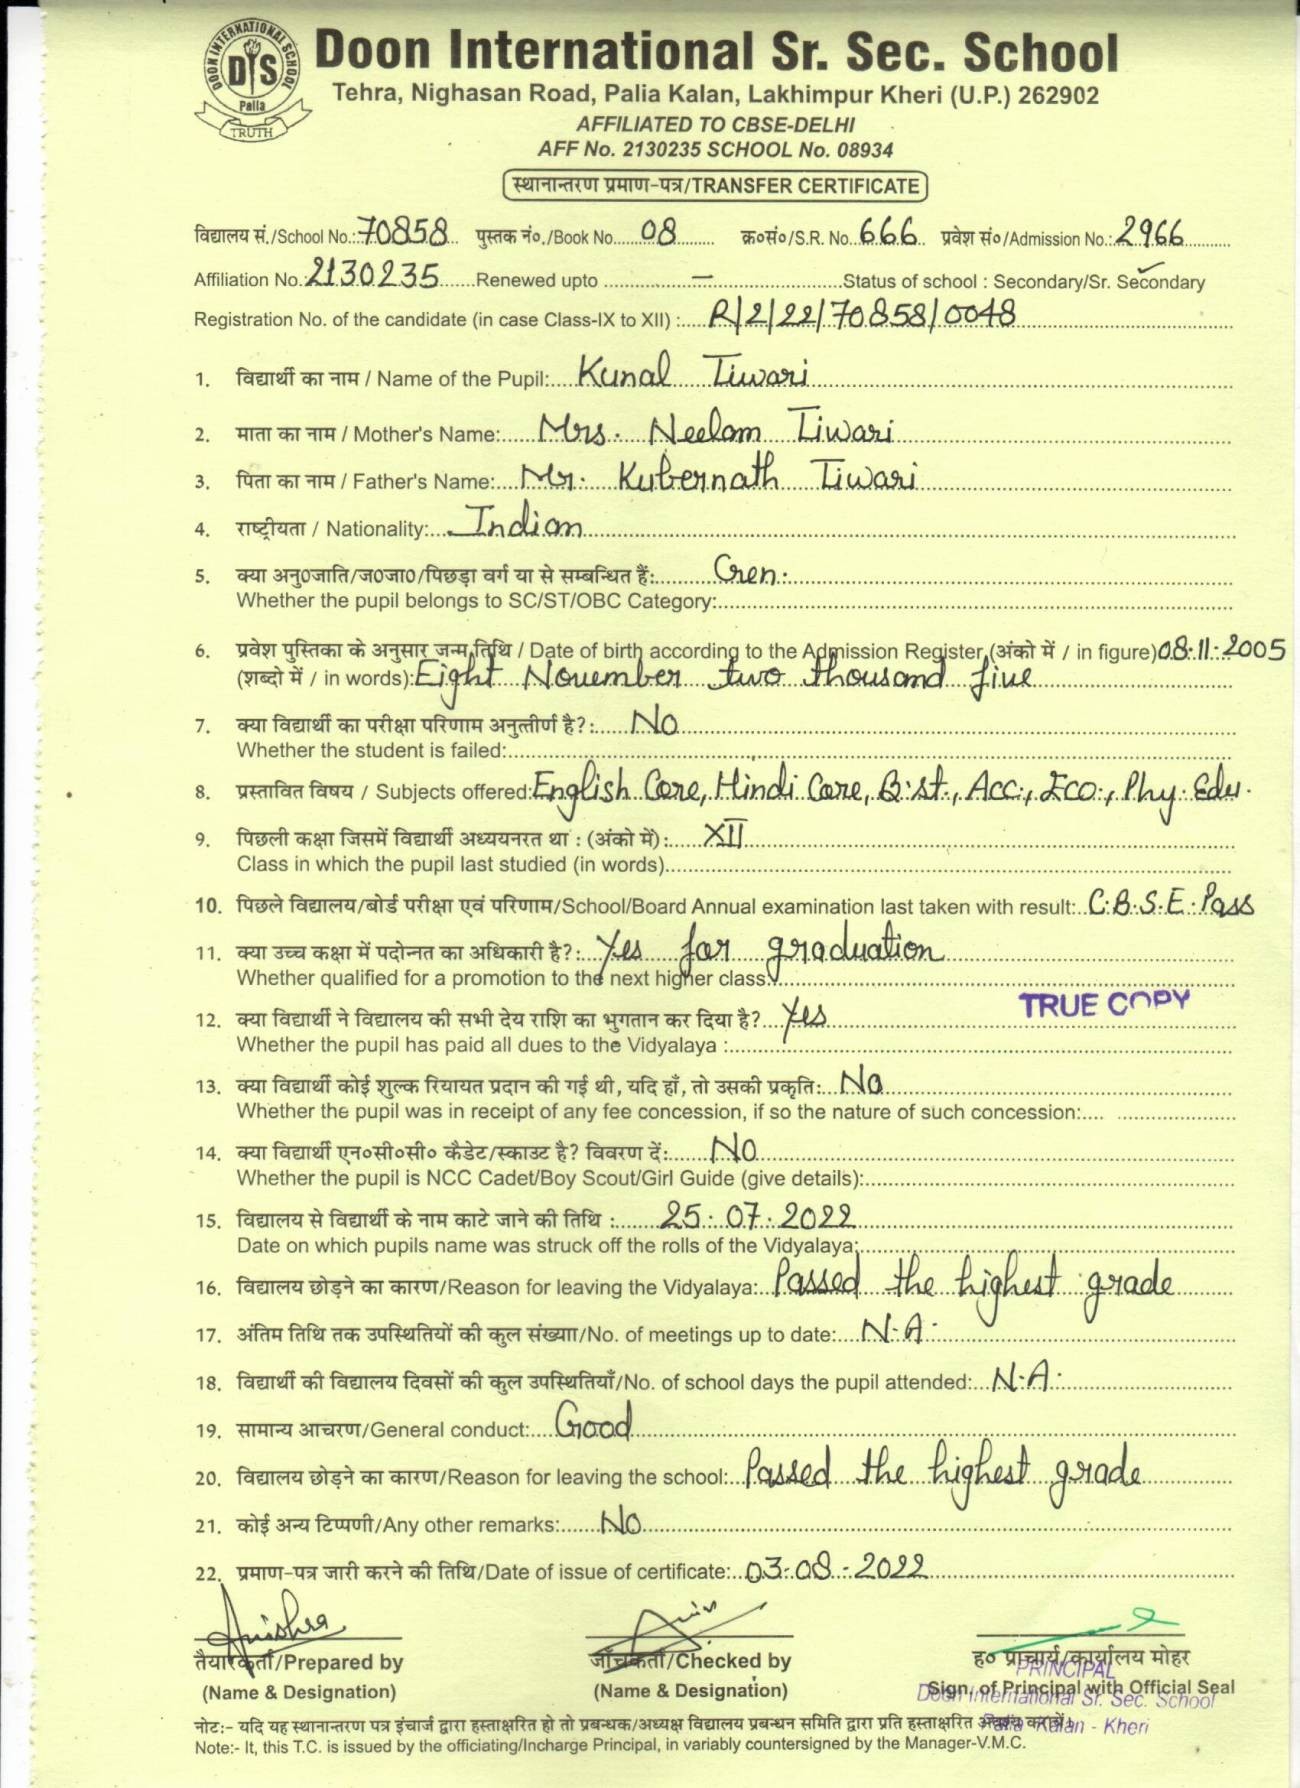 DOON INTERNATIONAL SCHOOL
DIS
Palia
TRUTH
Doon International Sr. Sec. School
Tehra, Nighasan Road, Palia Kalan, Lakhimpur Kheri (U.P.) 262902
AFFILIATED TO CBSE-DELHI
AFF No. 2130235 SCHOOL No. 08934
स्थानान्तरण प्रमाण-पत्र/TRANSFER CERTIFICATE
विद्यालय सं./School No.: 70858 पुस्तक नं०./Book No. 08 क्र०सं०/S.R. No. 666 प्रवेश सं०/Admission No.: 2966
Affiliation No.: 2130235 Renewed upto — Status of school : Secondary/Sr. Secondary
Registration No. of the candidate (in case Class-IX to XII) : R/2/22/70858/0048
1. विद्यार्थी का नाम / Name of the Pupil: Kunal Tiwari
2. माता का नाम / Mother's Name: Mrs. Neelam Tiwari
3. पिता का नाम / Father's Name: Mr. Kubernath Tiwari
4. राष्ट्रीयता / Nationality: Indian
5. क्या अनु0जाति/ज0जा0/पिछड़ा वर्ग या से सम्बन्धित हैं: Gen.
Whether the pupil belongs to SC/ST/OBC Category:
6. प्रवेश पुस्तिका के अनुसार जन्म तिथि / Date of birth according to the Admission Register (अंको में / in figure) 08.11.2005
(शब्दो में / in words): Eight November two thousand five
7. क्या विद्यार्थी का परीक्षा परिणाम अनुत्तीर्ण है?: No
Whether the student is failed:
8. प्रस्तावित विषय / Subjects offered: English Core, Hindi Core, B.st., Acc., Eco., Phy. Edu.
9. पिछली कक्षा जिसमें विद्यार्थी अध्ययनरत था : (अंको में): XII
Class in which the pupil last studied (in words)
10. पिछले विद्यालय/बोर्ड परीक्षा एवं परिणाम/School/Board Annual examination last taken with result: C.B.S.E. Pass
11. क्या उच्च कक्षा में पदोन्नत का अधिकारी है?: Yes for graduation
Whether qualified for a promotion to the next higher class:
TRUE COPY
12. क्या विद्यार्थी ने विद्यालय की सभी देय राशि का भुगतान कर दिया है? Yes
Whether the pupil has paid all dues to the Vidyalaya :
13. क्या विद्यार्थी कोई शुल्क रियायत प्रदान की गई थी, यदि हाँ, तो उसकी प्रकृति: No
Whether the pupil was in receipt of any fee concession, if so the nature of such concession:
14. क्या विद्यार्थी एन०सी०सी० कैडेट/स्काउट है? विवरण दें: No
Whether the pupil is NCC Cadet/Boy Scout/Girl Guide (give details):
15. विद्यालय से विद्यार्थी के नाम काटे जाने की तिथि : 25.07.2022
Date on which pupils name was struck off the rolls of the Vidyalaya:
16. विद्यालय छोड़ने का कारण/Reason for leaving the Vidyalaya: Passed the highest grade
17. अंतिम तिथि तक उपस्थितियों की कुल संख्याा/No. of meetings up to date: N.A.
18. विद्यार्थी की विद्यालय दिवसों की कुल उपस्थितियाँ/No. of school days the pupil attended: N.A.
19. सामान्य आचरण/General conduct: Good
20. विद्यालय छोड़ने का कारण/Reason for leaving the school: Passed the highest grade
21. कोई अन्य टिप्पणी/Any other remarks: No
22. प्रमाण-पत्र जारी करने की तिथि/Date of issue of certificate: 03.08.2022
तैयारकर्ता/Prepared by जाँचकर्ता/Checked by ह० प्राचार्य/कार्यालय मोहर
PRINCIPAL
(Name & Designation) (Name & Designation) Sign. of Principal with Official Seal
Doon International Sr. Sec. School
Palia Kalan - Kheri
नोटः- यदि यह स्थानान्तरण पत्र इंचार्ज द्वारा हस्ताक्षरित हो तो प्रबन्धक/अध्यक्ष विद्यालय प्रबन्धन समिति द्वारा प्रति हस्ताक्षरित अवश्य करायें।
Note:- It, this T.C. is issued by the officiating/Incharge Principal, in variably countersigned by the Manager-V.M.C.